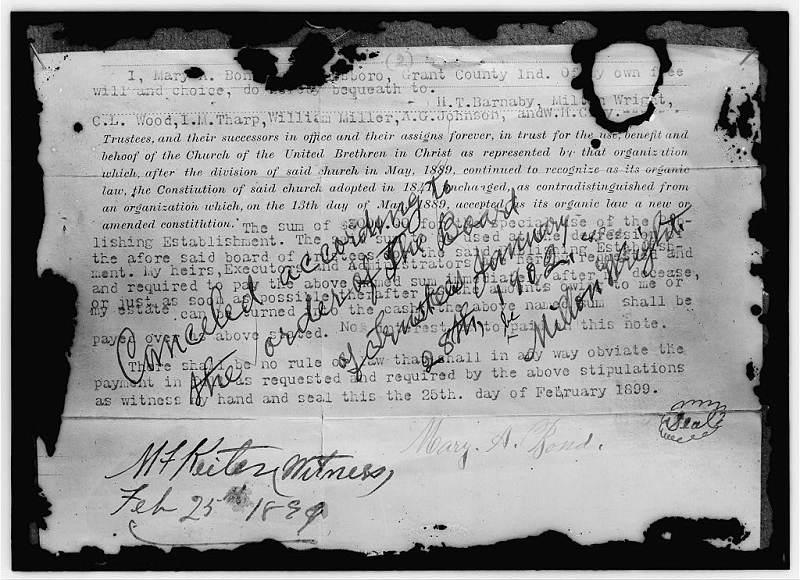 (2)
I, Mary A. Bond Jonesboro, Grant County Ind. Of my own free
will and choice, do hereby bequeath to.
H.T.Barnaby, Milton Wright,
C.L. Wood,I.M.Tharp,William Miller,A.G.Johnson, andW.H.Clay.
Trustees, and their successors in office and their assigns forever, in trust for the use, benefit and
behoof of the Church of the United Brethren in Christ as represented by that organization
which, after the division of said church in May, 1889, continued to recognize as its organic
law, the Constiution of said church adopted in 1841 unchanged, as contradistinguished from
an organization which, on the 13th day of May 1889, accepted as its organic law a new or
amended constitution. The sum of for the special use of the
lishing Establishment. The sum used at the
the afore said board of trustees of the said Establish-
ment. My heirs, Executors and Administrators
and required to pay the above named sum immediately after my decease,
or just as soon as possible thereafter as the amounts owing to me or
my estate can be turned into cash, the above named sum shall be
payed over as above stated. No interest to be paid on this note.
There shall be no rule of law that shall in any way obviate the
payment in as requested and required by the above stipulations
as witness my hand and seal this the 25th. day of February 1899.
Cancelled according to
the order of the Board
of Trustees January
28th, 1902.
Milton Wright.
Mary A. Bond.
Seal
MF Keiter (Witness)
Feb 25th 1889